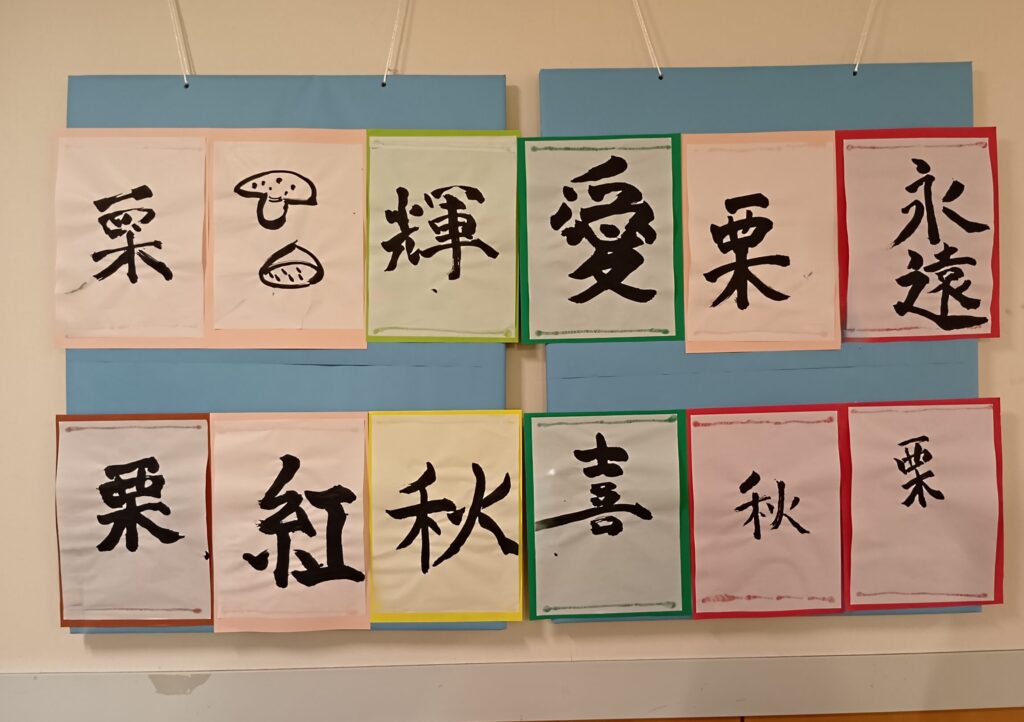 栗
輝
愛
栗
永遠
栗
紅
秋
喜
秋
栗